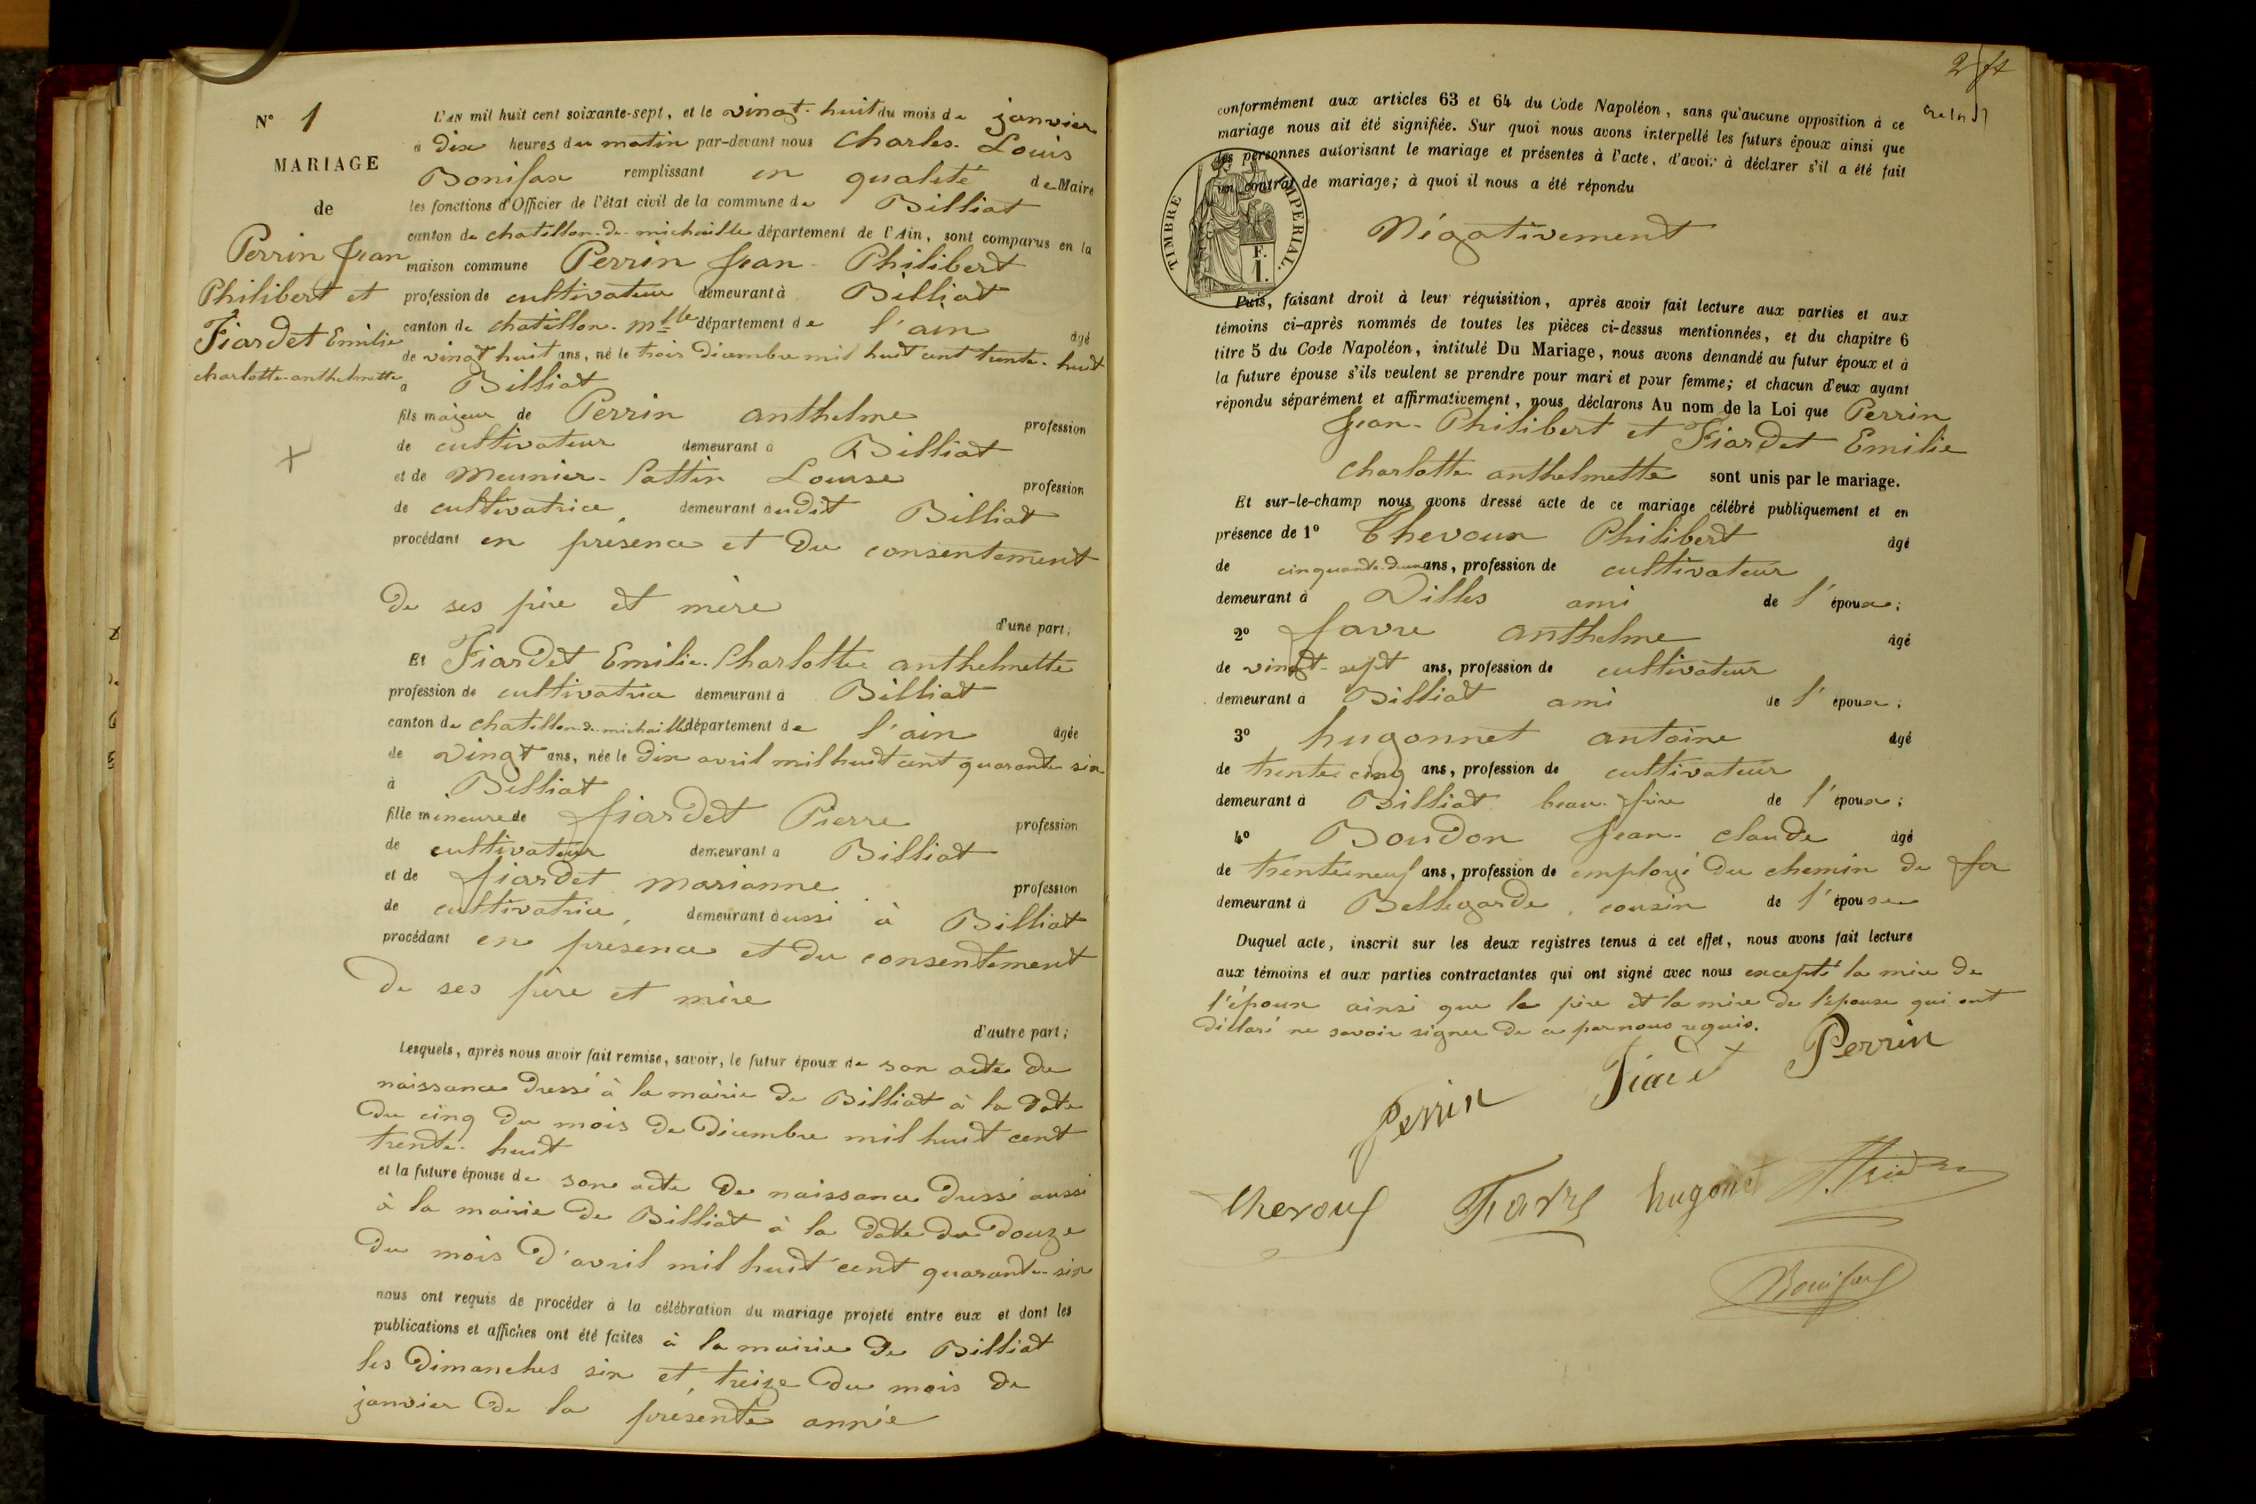 N° 1
MARIAGE
de
Perrin Jean
Philibert et
Fiardet Emilie
charlotte-anthelmette
L'AN mil huit cent soixante-sept, et le vingt-huit du mois de janvier
à dix heures du matin par-devant nous Charles-Louis
Bonifax remplissant en qualité de Maire
les fonctions d'Officier de l'état civil de la commune de Billiat
canton de chatillon-de-michaille département de l'Ain, sont comparus en la
maison commune Perrin Jean-Philibert
profession de cultivateur demeurant à Billiat
canton de chatillon-mlle département de l'ain âgé
de vingt huit ans, né le trois décembre mil huit cent trente-huit
à Billiat
fils majeur de Perrin anthelme profession
de cultivateur demeurant à Billiat
et de Meunier-Cattin Louise profession
de cultivatrice, demeurant audit Billiat
procédant en présence et du consentement
de ses père et mère
d'une part;
Et Fiardet Emilie-Charlotte anthelmette
profession de cultivatrice demeurant à Billiat
canton de chatillon-de-michaille département de l'ain âgée
de vingt ans, née le dix avril mil huit cent quarante six
à Billiat
fille mineure de fiardet Pierre profession
de cultivateur demeurant à Billiat
et de fiardet marianne profession
de cultivatrice, demeurant aussi à Billiat
procédant en présence et du consentement
de ses père et mère
d'autre part;
Lesquels, après nous avoir fait remise, savoir, le futur époux de son acte de
naissance dressé à la mairie de Billiat à la date
du cinq du mois de décembre mil huit cent
trente-huit
et la future épouse de son acte de naissance dressé aussi
à la mairie de Billiat à la date du douze
du mois d'avril mil huit cent quarante-six
nous ont requis de procéder à la célébration du mariage projeté entre eux et dont les
publications et affiches ont été faites à la mairie de Billiat
les dimanches six et treize du mois de
janvier de la présente année
conformément aux articles 63 et 64 du Code Napoléon, sans qu'aucune opposition à ce
mariage nous ait été signifiée. Sur quoi nous avons interpellé les futurs époux ainsi que
les personnes autorisant le mariage et présentes à l'acte, d'avoir à déclarer s'il a été fait
un contrat de mariage; à quoi il nous a été répondu
TIMBRE IMPÉRIAL.
F.
1.
Négativement
Puis, faisant droit à leur réquisition, après avoir fait lecture aux parties et aux
témoins ci-après nommés de toutes les pièces ci-dessus mentionnées, et du chapitre 6
titre 5 du Code Napoléon, intitulé Du Mariage, nous avons demandé au futur époux et à
la future épouse s'ils veulent se prendre pour mari et pour femme; et chacun d'eux ayant
répondu séparément et affirmativement, nous déclarons Au nom de la Loi que Perrin
Jean-Philibert et Fiardet Emilie
Charlotte anthelmette sont unis par le mariage.
Et sur-le-champ nous avons dressé acte de ce mariage célébré publiquement et en
présence de 1° Thevoux Philibert âgé
de cinquante-deux ans, profession de cultivateur
demeurant à Villes ami de l'époux;
2° favre anthelme âgé
de vingt-sept ans, profession de cultivateur
demeurant à Billiat ami de l'époux;
3° hugonnet antoine âgé
de trente cinq ans, profession de cultivateur
demeurant à Billiat beau-frère de l'époux;
4° Boudon Jean-claude âgé
de trente neuf ans, profession de employé du chemin de fer
demeurant à Bellegarde, cousin de l'épouse
Duquel acte, inscrit sur les deux registres tenus à cet effet, nous avons fait lecture
aux témoins et aux parties contractantes qui ont signé avec nous excepté la mère de
l'époux ainsi que le père et la mère de l'épouse qui ont
déclaré ne savoir signer de ce par nous requis.
Perrin Fiardet Perrin
thevoux Favre hugonet
Bonifax